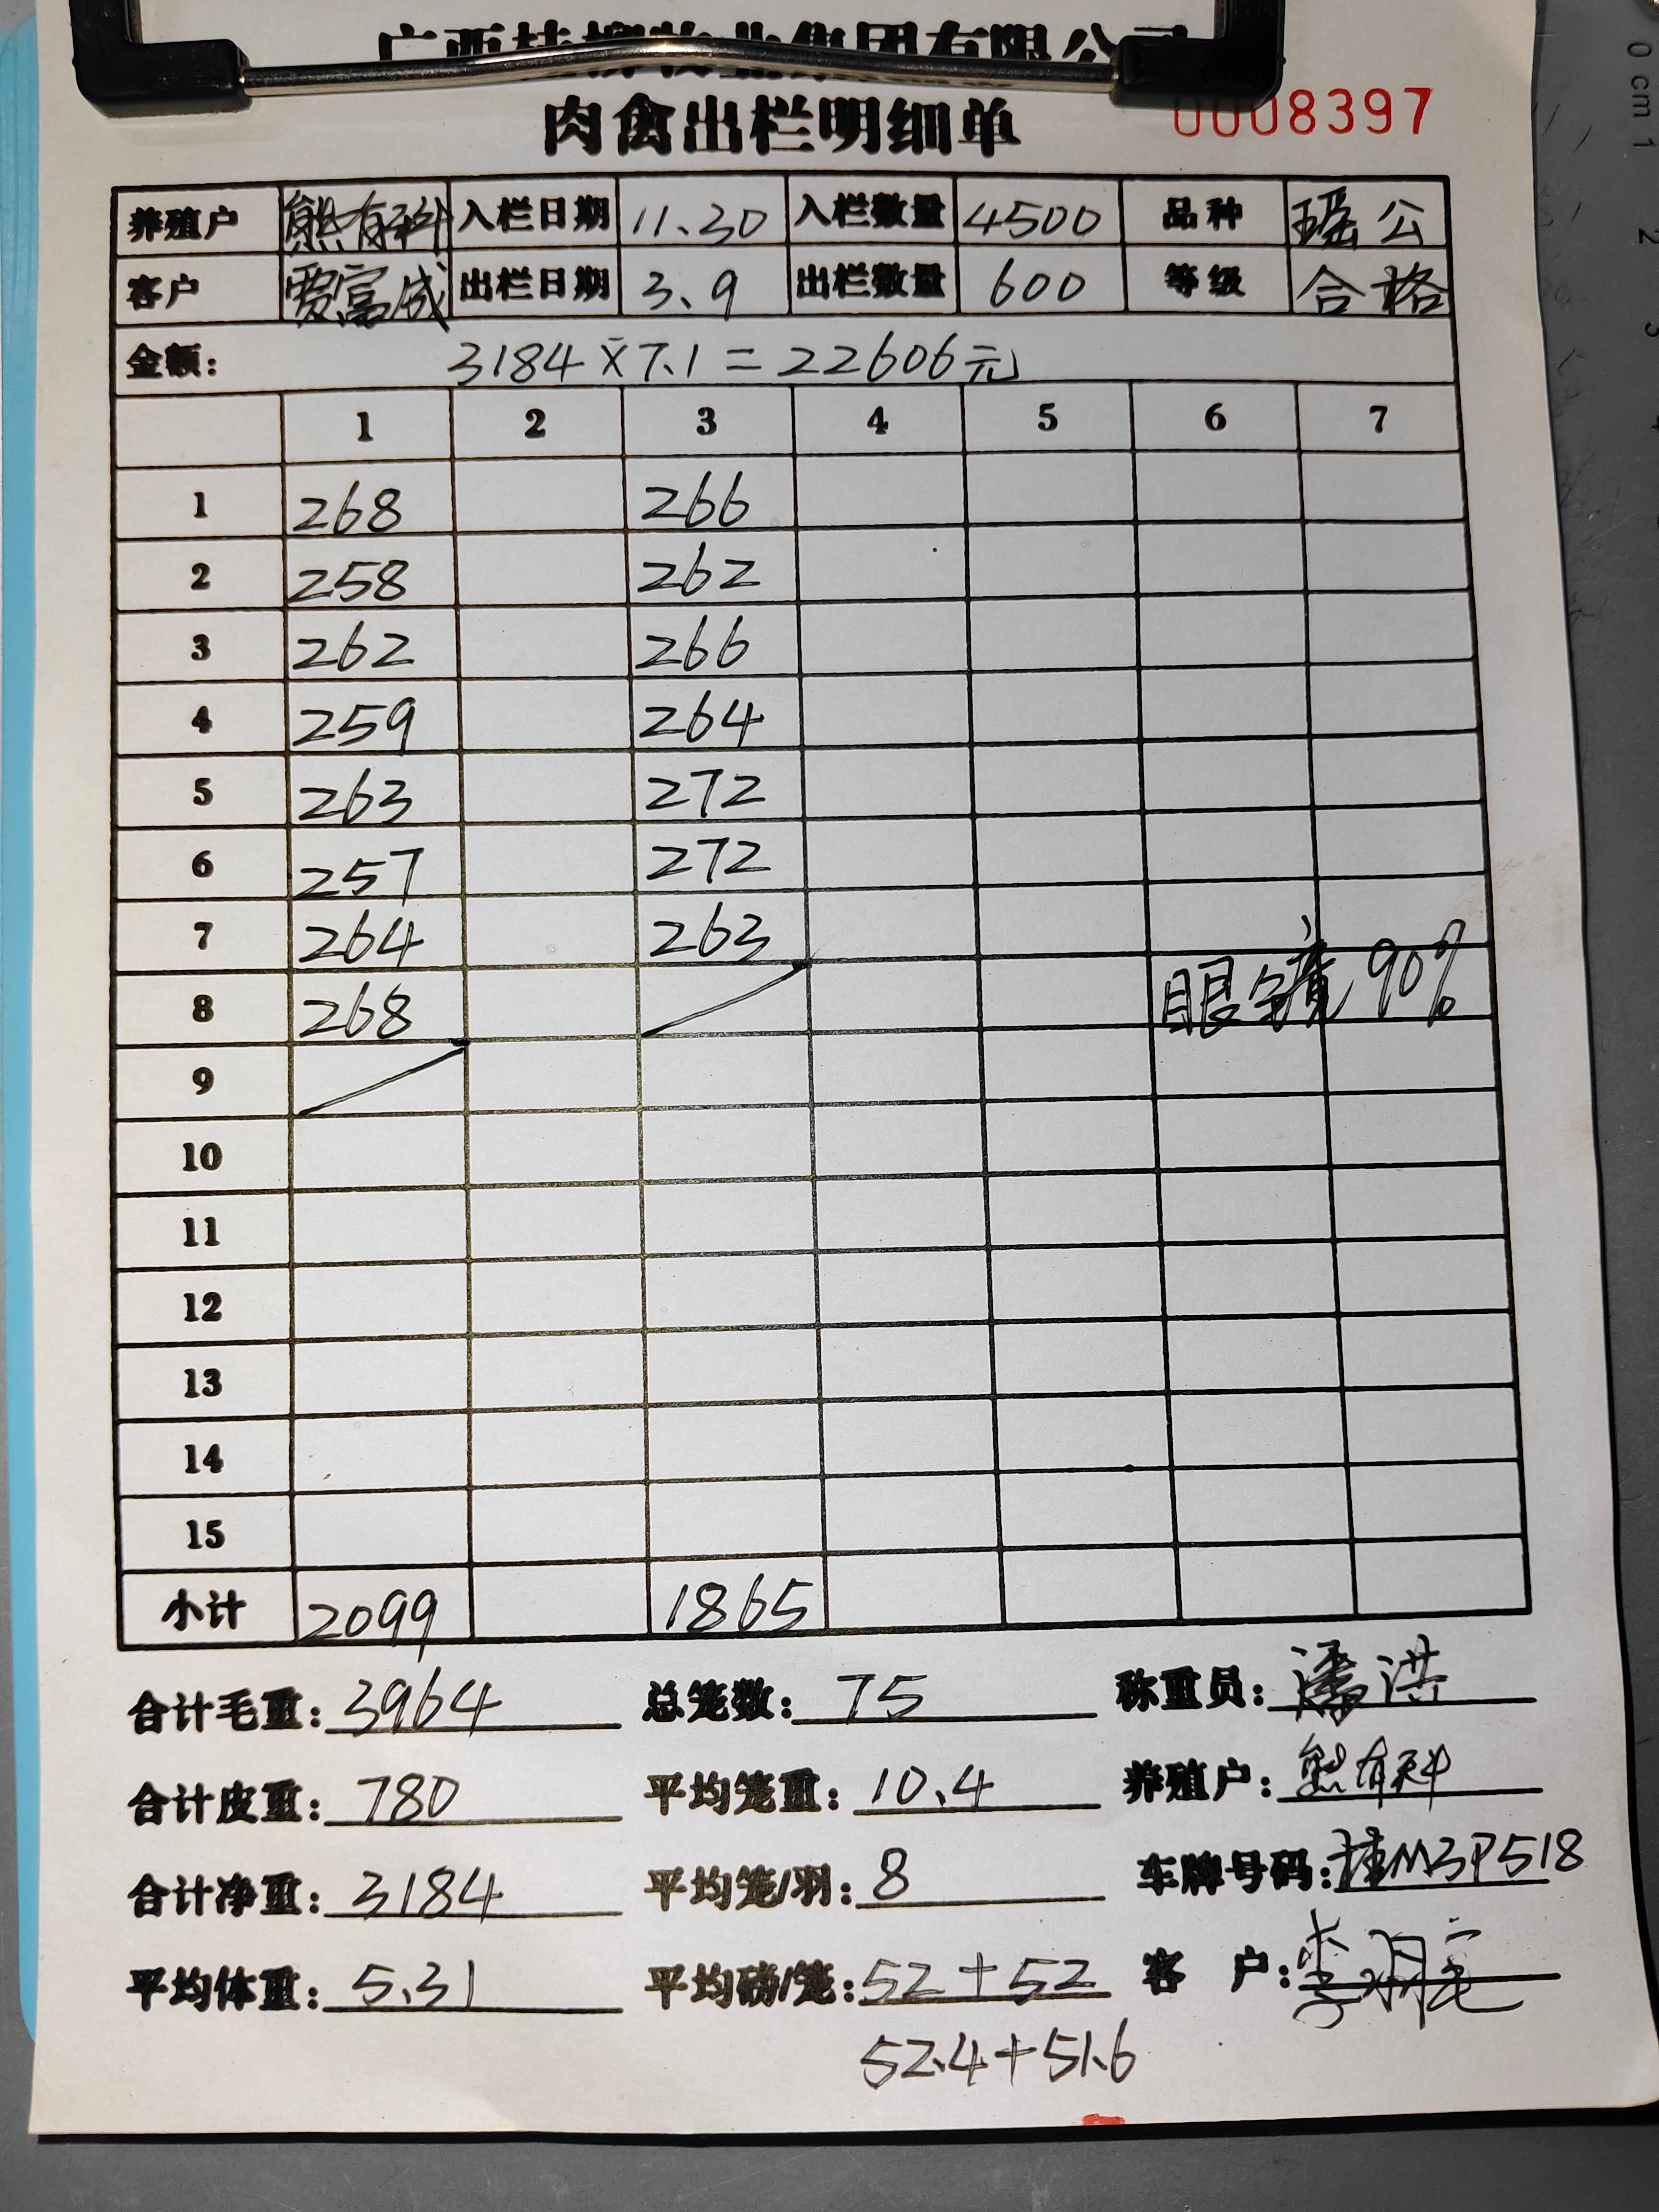 肉禽出栏明细单 0008397
养殖户 熊有科 入栏日期 11.30 入栏数量 4500 品种 瑶公
客户 贾富成 出栏日期 3.9 出栏数量 600 等级 合格
金额: 3184×7.1=22606元
1 2 3 4 5 6 7
1 268 266
2 258 262
3 262 266
4 259 264
5 263 272
6 257 272
7 264 263
8 268 眼镜90%
9
10
11
12
13
14
15
小计 2099 1865
合计毛重: 3964 总笼数: 75 称重员: 潘洪
合计皮重: 780 平均笼重: 10.4 养殖户: 熊有科
合计净重: 3184 平均笼/羽: 8 车牌号码: 桂M3P518
平均体重: 5.31 平均磅/笼: 52+52 客 户:
52.4+51.6
0 cm 1 2 3